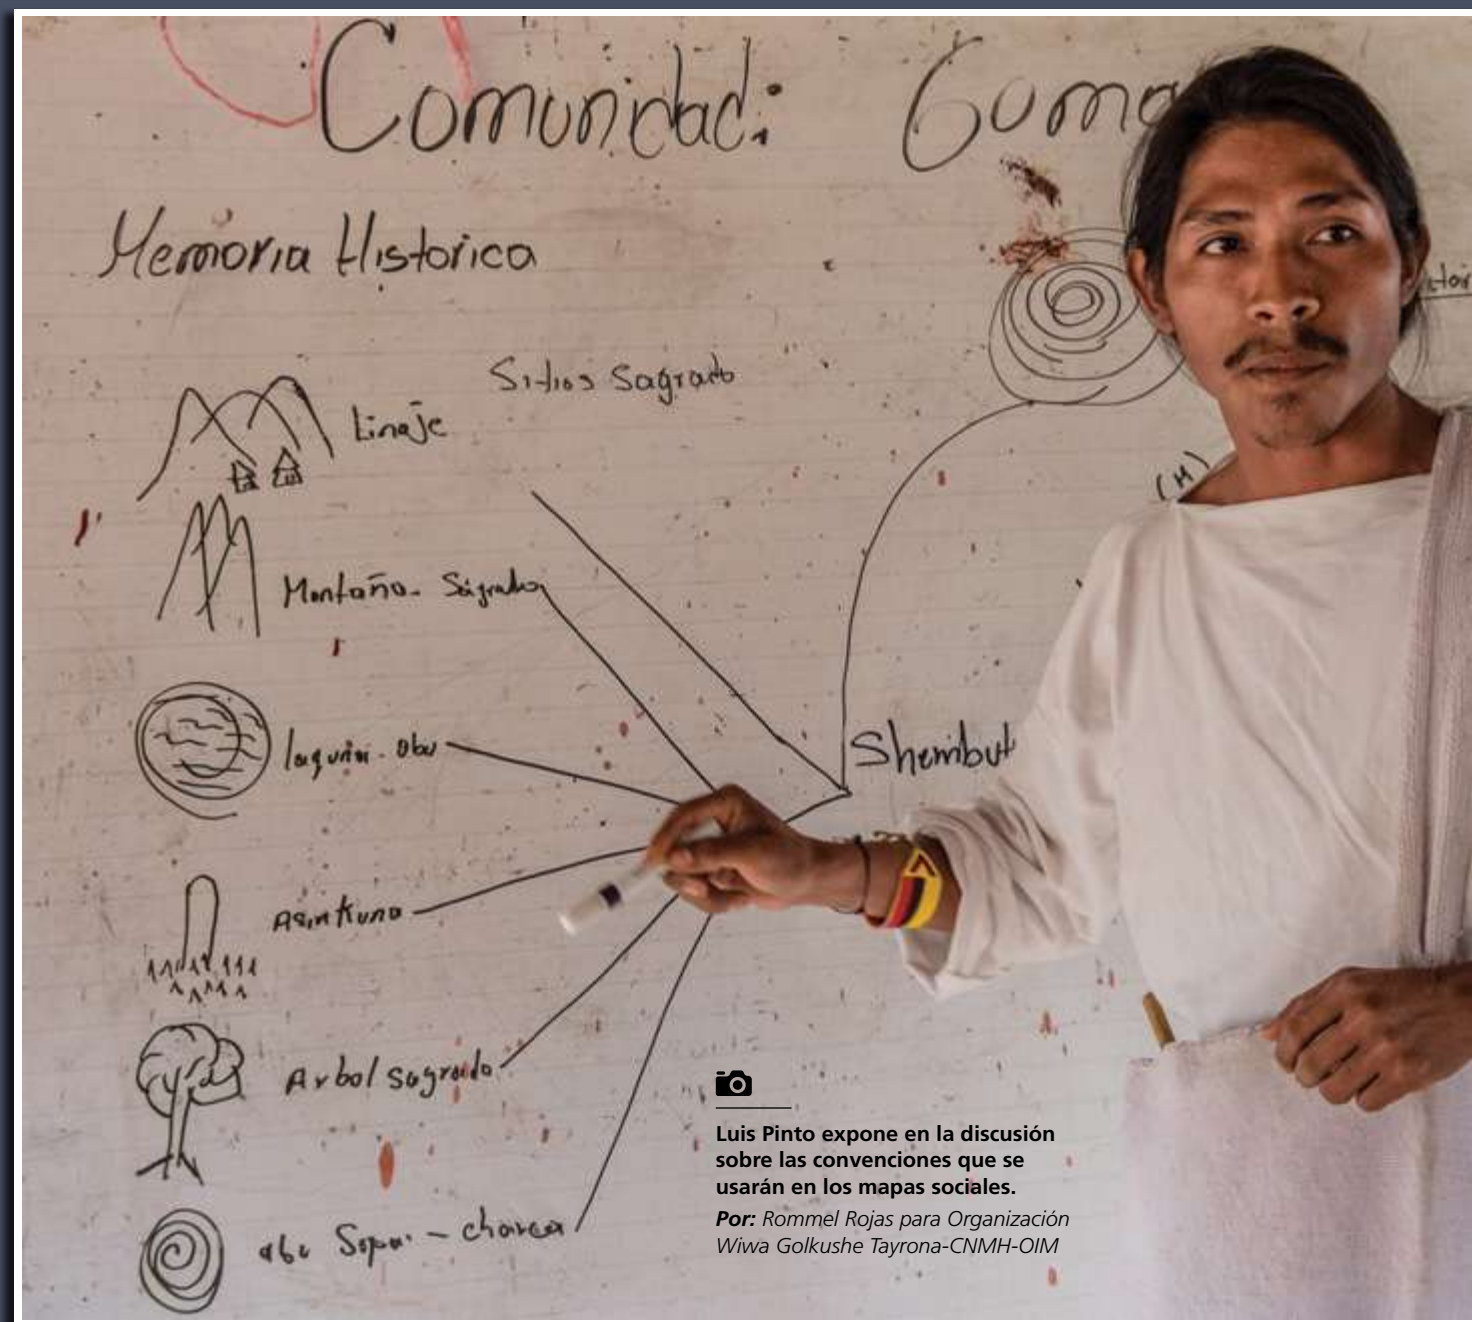 Comunidad: Guma
Memoria Historica
Sitios Sagrado
Linaje
(H)
Montaña - Sagrado
laguna - abu
Shembut
Asinkuna
Arbol sagrado
abu Sopai - charca
Luis Pinto expone en la discusión
sobre las convenciones que se
usarán en los mapas sociales.
Por: Rommel Rojas para Organización
Wiwa Golkushe Tayrona-CNMH-OIM